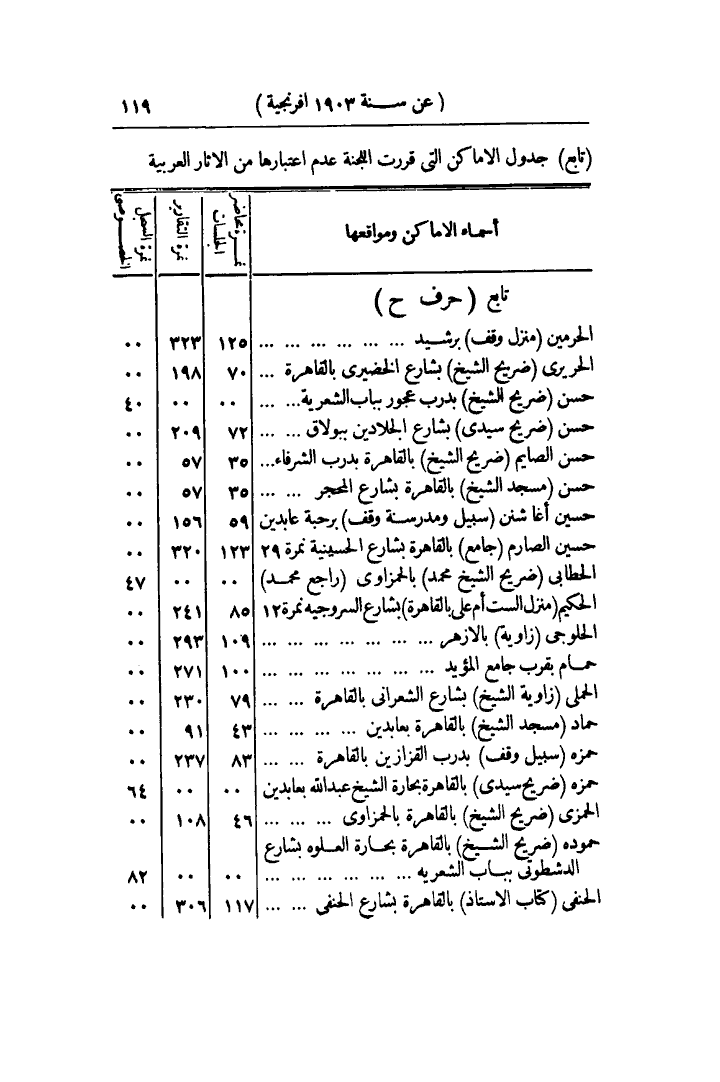 (عن سنة ١٩٠٣ افرنجية) ١١٩
(تابع) جدول الاماكن التى قررت اللجنة عدم اعتبارها من الاثار العربية
أسماء الاماكن ومواقعها | نمرة محاضر الجلسات | نمرة التقارير | نمرة السجل الخصوصى
تابع (حرف ح)
الحرمين (منزل وقف) برشيد ... ... ... ... ... ... ١٢٥ ٣٢٣ ٠٠
الحريرى (ضريح الشيخ) بشارع الخضيرى بالقاهرة ... ٧٠ ١٩٨ ٠٠
حسن (ضريح الشيخ) بدرب عجور بباب الشعرية... ... ٠٠ ٠٠ ٤٠
حسن (ضريح سيدى) بشارع الجلادين ببولاق ... ... ٧٢ ٢٠٩ ٠٠
حسن الصايم (ضريح الشيخ) بالقاهرة بدرب الشرفاء... ٣٥ ٥٧ ٠٠
حسن (مسجد الشيخ) بالقاهرة بشارع المحجر ... ... ٣٥ ٥٧ ٠٠
حسين أغا شنن (سبيل ومدرسة وقف) برحبة عابدين ٥٩ ١٥٦ ٠٠
حسين الصارم (جامع) بالقاهرة بشارع الحسينية نمرة ٢٩ ١٢٣ ٣٢٠ ٠٠
الحطابى (ضريح الشيخ محمد) بالحمزاوى (راجع محمد) ٠٠ ٠٠ ٤٧
الحكيم (منزل الست أم على بالقاهرة) بشارع السروجيه نمرة ١٢ ٨٥ ٢٤١ ٠٠
الحلوجى (زاوية) بالازهر ... ... ... ... ... ... ... ١٠٩ ٢٩٣ ٠٠
حمام بقرب جامع المؤيد ... ... ... ... ... ... ... ١٠٠ ٢٧١ ٠٠
الحملى (زاوية الشيخ) بشارع الشعرانى بالقاهرة ... ... ٧٩ ٢٣٠ ٠٠
حماد (مسجد الشيخ) بالقاهرة بعابدين ... ... ... ... ٤٣ ٩١ ٠٠
حمزه (سبيل وقف) بدرب القزازين بالقاهرة ... ... ٨٣ ٢٣٧ ٠٠
حمزه (ضريح سيدى) بالقاهرة بحارة الشيخ عبدالله بعابدين ٠٠ ٠٠ ٦٤
الحمزى (ضريح الشيخ) بالقاهرة بالحمزاوى ... ... ... ٤٦ ١٠٨ ٠٠
حموده (ضريح الشيخ) بالقاهرة بحارة العلوه بشارع
الدشطوتى بباب الشعريه ... ... ... ... ... ... ... ٠٠ ٠٠ ٨٢
الحنفى (كتاب الاستاذ) بالقاهرة بشارع الحنفى ... ... ١١٧ ٣٠٦ ٠٠